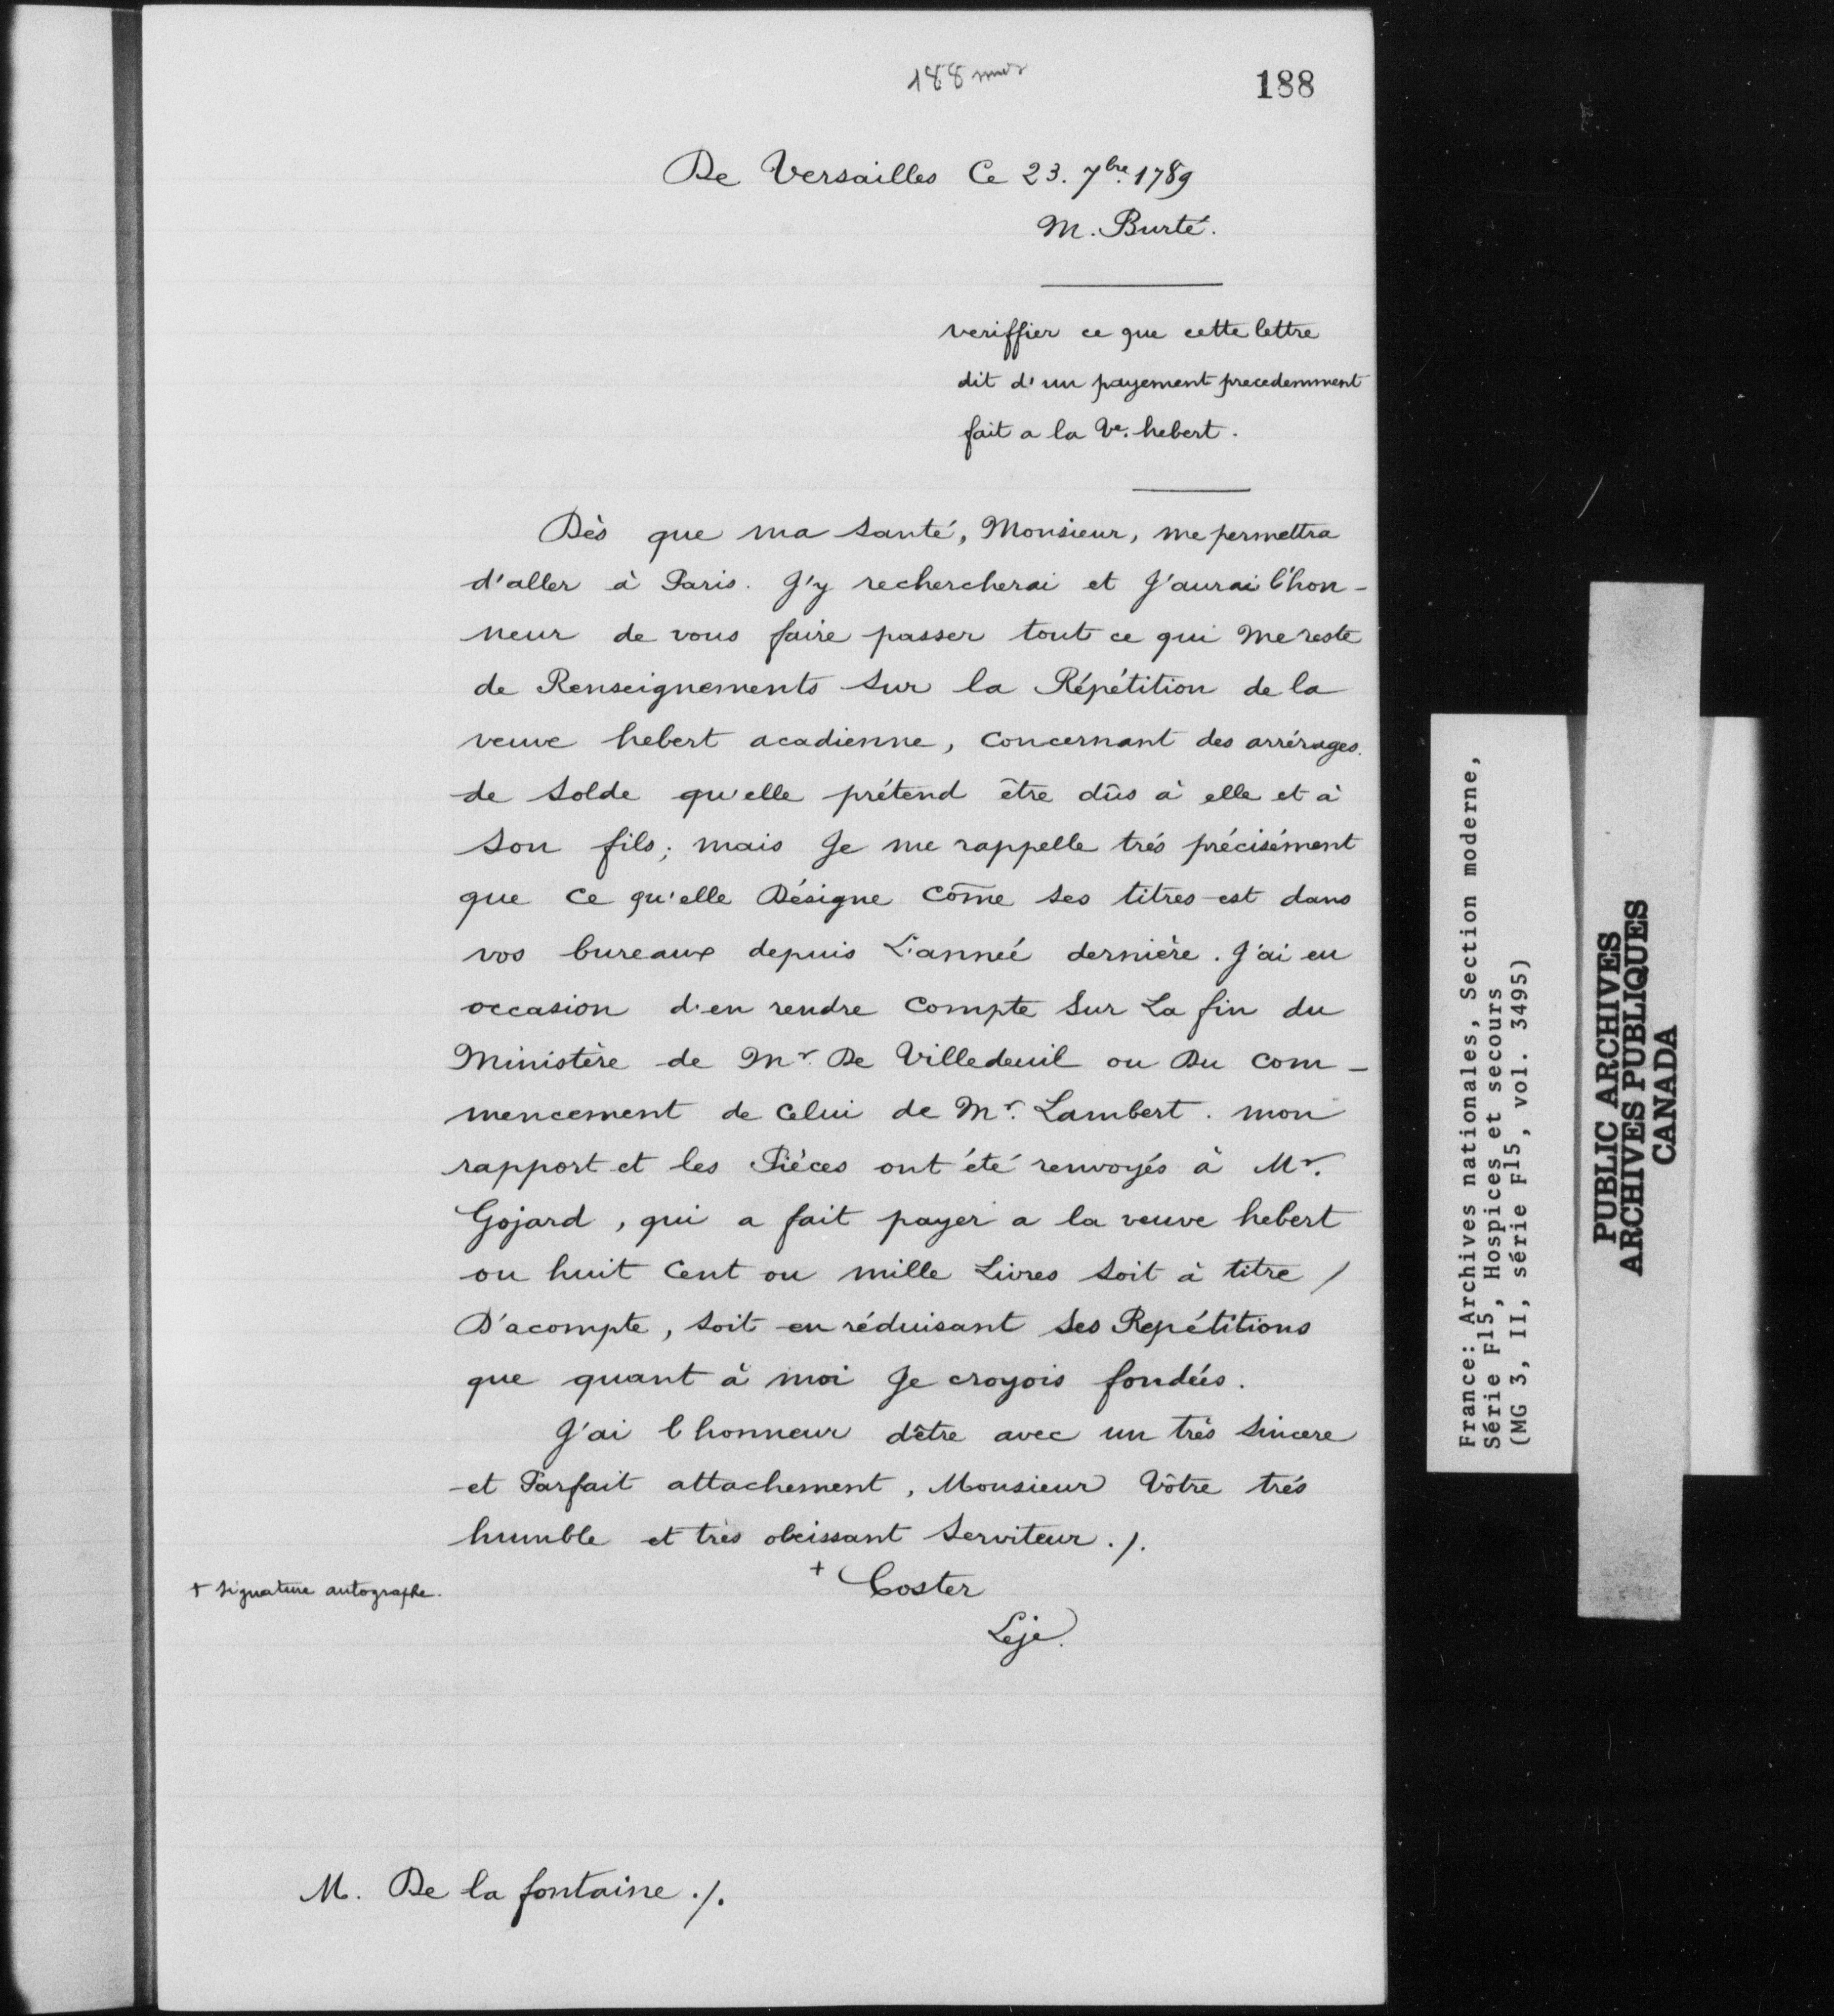 188 mms
188
De Versailles Ce 23. 7bre. 1789
M. Burté.
veriffier ce que cette lettre
dit d'un payement precedemment
fait a la Ve. hebert.
Dès que ma santé, Monsieur, me permettra
d'aller à Paris. J'y rechercherai et J'aurai l'hon-
neur de vous faire passer tout ce qui me reste
de Renseignements sur la Répétition de la
veuve hebert acadienne, concernant des arrérages.
de solde qu'elle prétend être dûs à elle et à
son fils; mais Je me rappelle trés précisément
que ce qu'elle Désigne come ses titres est dans
vos bureaux depuis L'anneé dernière. J'ai eu
occasion d'en rendre compte sur La fin du
Ministère de Mr. De Villedeuil ou Du com-
mencement de celui de Mr. Lambert. mon
rapport et les Piéces ont été renvoyés à Mr.
Gojard, qui a fait payer a la veuve hebert
ou huit cent ou mille Livres soit à titre /
D'acompte, soit en réduisant ses Repétitions
que quant à moi Je croyois fondées.
J'ai lhonneur d'être avec un très sincere
et Parfait attachement, Monsieur Vôtre trés
humble et très obeissant serviteur ./.
+ Coster
+ signature autographe.
Leje.
M. De la fontaine ./.
France: Archives nationales, Section moderne,
Série F15, Hospices et secours
(MG 3, II, série F15, vol. 3495)
PUBLIC ARCHIVES
ARCHIVES PUBLIQUES
CANADA